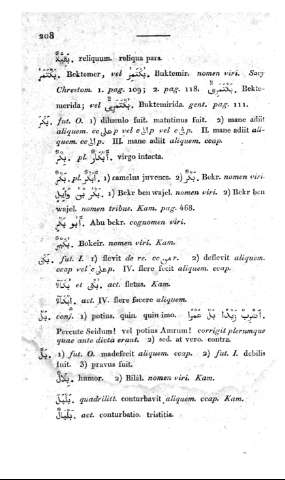 208
بَقِيَّةٌ. reliquum. reliqua pars.
بَكْتَمُرُ. Bektemer, vel بُكْتَمِرُ. Buktemir. nomen viri. Sacy
Chrestom. 1. pag. 109; 2. pag. 118. بَكْتَمُرِىٌّ. Bekte-
merida; vel بُكْتَمِرِىٌّ. Buktemirida. gent. pag. 111.
بَكَرَ. fut. O. 1) diluculo fuit. matutinus fuit. 2) mane adiit
aliquem. cc على p vel إلى p vel فى p. II. mane adiit ali-
quem. cc إلى p. III. mane adiit aliquem. ccap.
بِكْرٌ. pl. أَبْكَارٌ. virgo intacta.
بَكْرٌ. pl. أَبْكُرٌ. 1) camelus juvencus. 2) بَكْرٌ. Bekr. nomen viri.
بَكْرُ بْنُ وَائِلٍ. 1) Bekr ben wajel. nomen viri. 2) Bekr ben
wajel. nomen tribus. Kam. pag. 468.
أَبُو بَكْرٍ. Abu bekr. cognomen viri.
بُكَيْرٌ. Bokeir. nomen viri. Kam.
بَكَى. fut. I. 1) flevit de re. cc من r. 2) deflevit aliquem.
ccap vel على p. IV. flere fecit aliquem. ccap.
بُكَاءٌ et بُكًى. act. fletus. Kam.
إِبْكَاءٌ. act. IV. flere facere aliquem.
بَلْ. conj. 1) potius. quin. quin imo. اِضْرِبْ زَيْدًا بَلْ عَمْرًا.
Percute Seidum! vel potius Amrum! corrigit plerumque
quae ante dicta erant. 2) sed. at vero. contra.
بَلَّ. 1) fut. O. madefecit aliquem. ccap. 2) fut. I. debilis
fuit. 3) pravus fuit.
بِلَالٌ. humor. 2) Bilâl. nomen viri. Kam.
بَلْبَلَ. quadrilitt. conturbavit aliquem. ccap. Kam.
بَلْبَالٌ. act. conturbatio. tristitia.